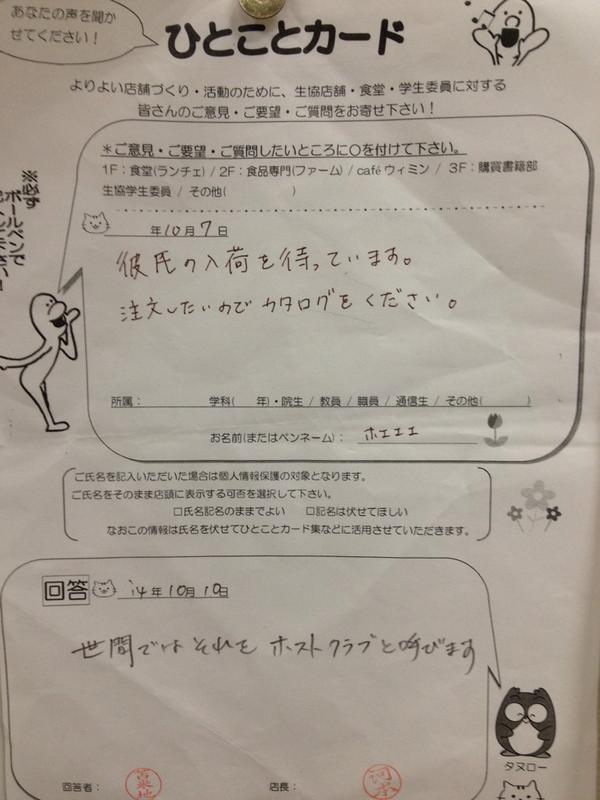 あなたの声を聞か
せてください！
ひとことカード
よりよい店舗づくり・活動のために、生協店舗・食堂・学生委員に対する
皆さんのご意見・ご要望・ご質問をお寄せ下さい！
※必ず
ボールペンで
＊ご意見・ご要望・ご質問したいところに○を付けて下さい。
1F：食堂(ランチェ) / 2F：食品専門(ファーム) / caféウィミン / 3F：購買書籍部
生協学生委員 / その他( )
年10月7日
彼氏の入荷を待っています。
注文したいのでカタログをください。
所属： 学科( 年)・院生 / 教員 / 職員 / 通信生 / その他( )
お名前(またはペンネーム)： ホエエエ
ご氏名を記入いただいた場合は個人情報保護の対象となります。
ご氏名をそのまま店頭に表示する可否を選択して下さい。
□氏名記名のままでよい □記名は伏せてほしい
なおこの情報は氏名を伏せてひとことカード集などに活用させていただきます。
回答 '14年10月10日
世間ではそれをホストクラブと呼びます
タヌロー
回答者： 店長：